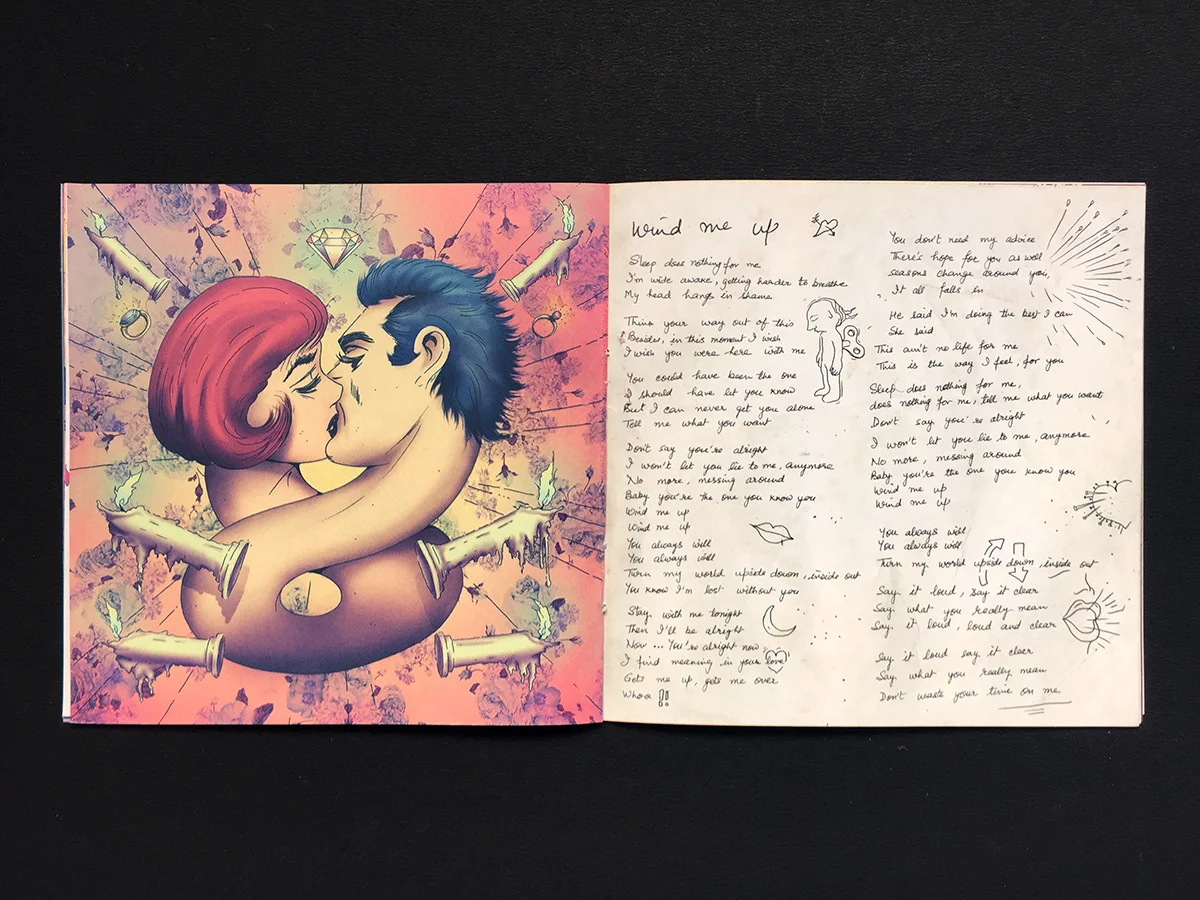 Wind me up
Sleep does nothing for me
I'm wide awake, getting harder to breathe
My head hangs in shame
Think your way out of this
Besides, in this moment I wish
I wish you were here with me
You could have been the one
I should have let you know
But I can never get you alone
Tell me what you want
Don't say you're alright
I won't let you lie to me, anymore
No more, messing around
Baby you're the one you know you
Wind me up
Wind me up
You always will
You always will
Turn my world upside down, inside out
You know I'm lost without you
Stay, with me tonight
Then I'll be alright
Now ... You're alright now
I find meaning in your love
Gets me up, gets me over
Whoa !!
You don't need my advice
There's hope for you as well
seasons change around you,
It all falls in
He said I'm doing the best I can
She said
This ain't no life for me
This is the way I feel, for you
Sleep does nothing for me,
does nothing for me, tell me what you want
Don't say you're alright
I won't let you lie to me, anymore
No more, messing around
Baby you're the one you know you
Wind me up
Wind me up
You always will
You always will
Turn my world upside down, inside out
Say it loud, say it clear
Say what you really mean
Say it loud, loud and clear
Say it loud say it clear
Say what you really mean
Don't waste your time on me